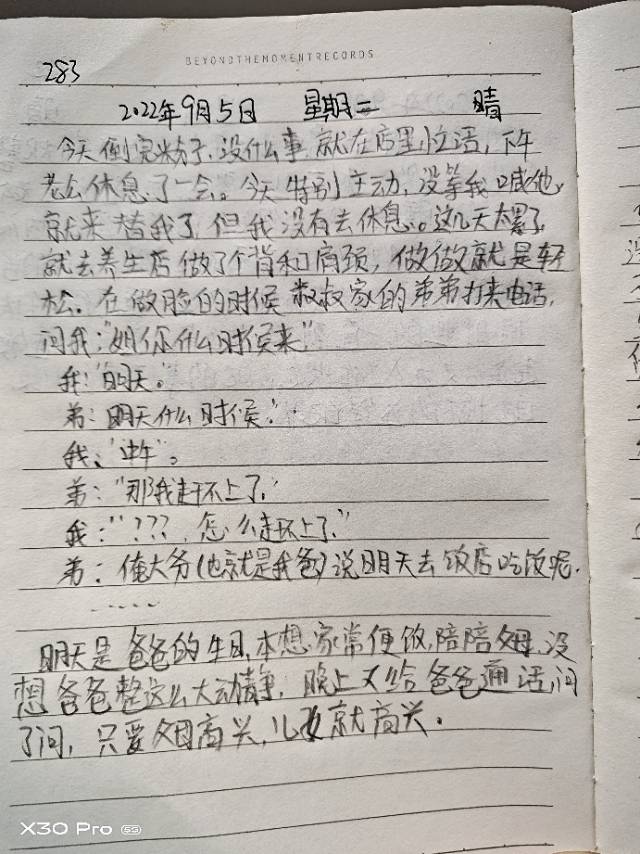 BEYONDTHEMOMENTRECORDS
283
2022年9月5日 星期二 晴
今天倒完米子,没什么事就在店里忙活,下午
老公休息了一会。今天特别主动,没等我喊他,
就来替我了,但我没有去休息。这几天太累了,
就去养生店做了个背和肩颈,做做就是轻
松。在做脸的时候叔叔家的弟弟打来电话,
问我:"姐你什么时候来"
我:"明天。"
弟:明天什么时候."
我:"中午"。
弟:"那我赶不上了."
我:"???,怎么赶不上了."
弟:俺大爷(也就是我爸)说明天去饭店吃饭呢.
.....
明天是爸爸的生日,本想家常便饭,陪陪父母,没
想爸爸整这么大动静,晚上又给爸爸通话,问
了问,只要父母高兴,儿女就高兴。
X30 Pro 5G